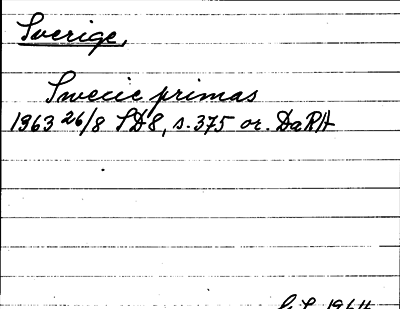 Sverige,
Swecie primas
1963 26/8 SD8, s. 375 or. DaRA